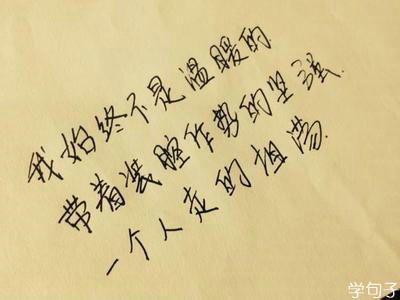 我始终不是温暖的
带着装腔作势的坚强
一个人走的坦荡
学句子